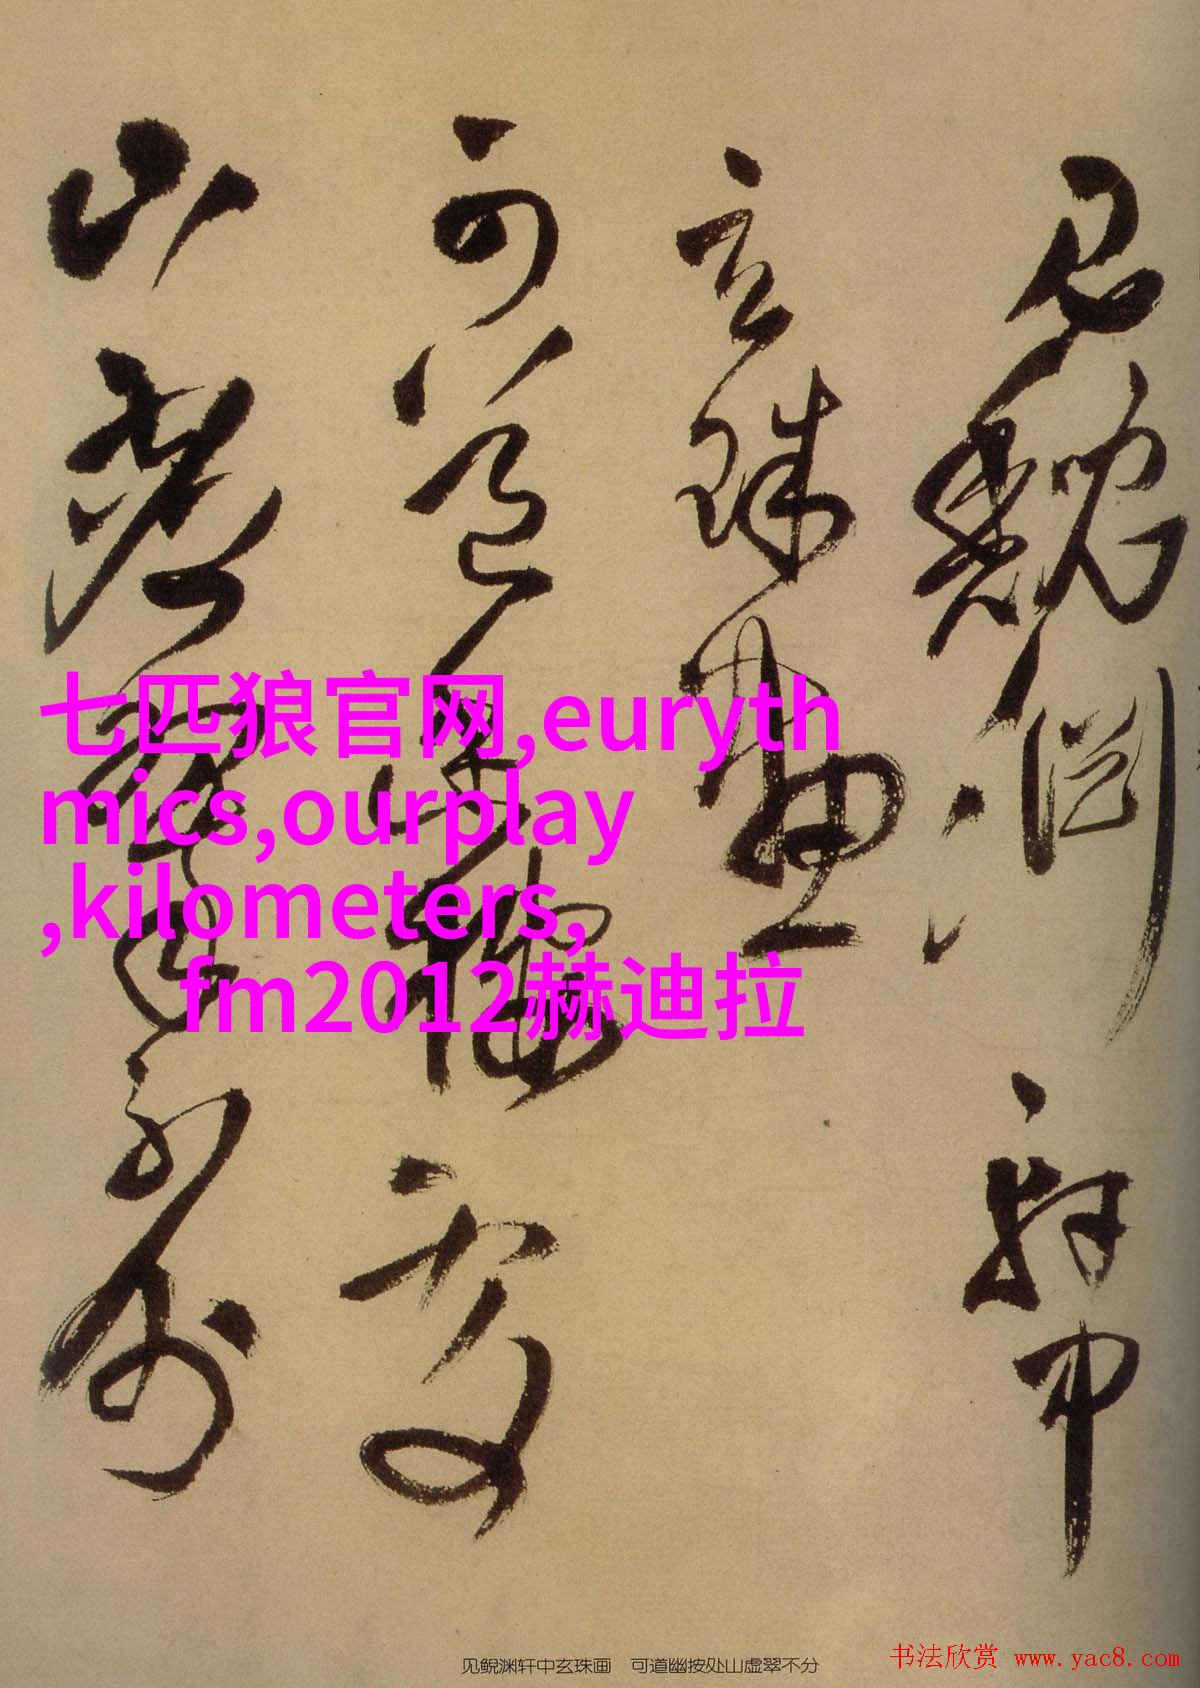 見鯢淵軒中
玄珠畫
可道幽處
山虛翠不分
七匹狼官网,euryth
mics,ourplay
,kilometers,
fm2012赫迪拉
见鲵渊轩中玄珠画 可道幽按处山虚翠不分
书法欣赏 www.yac8.com